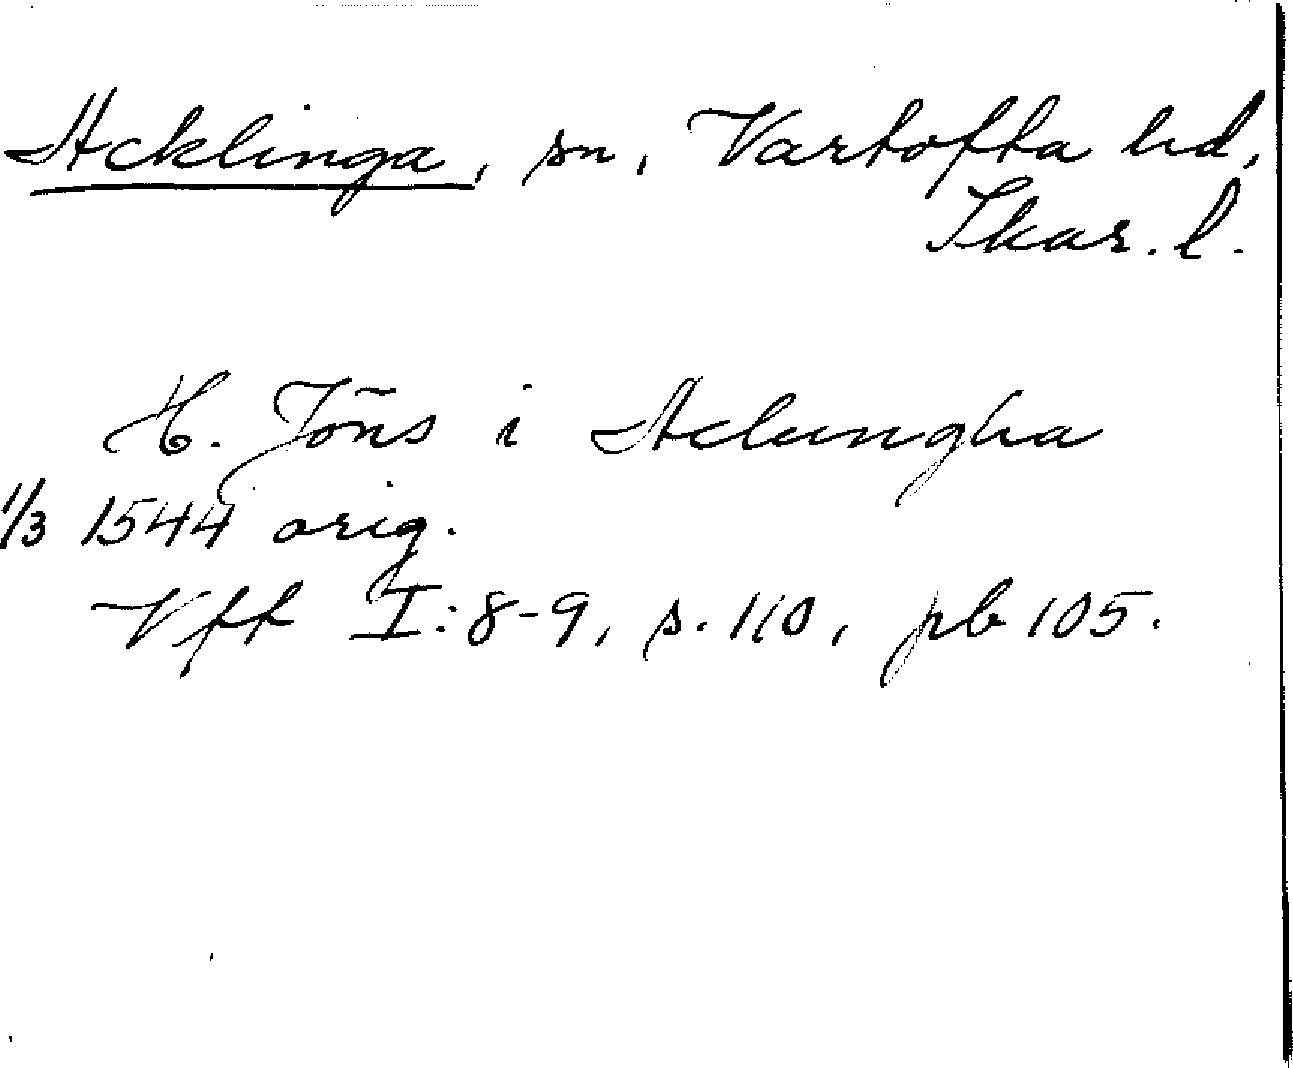 Acklinga, sn, Vartofta hd,
Skar. l.
H. Jōns i Aclungha
1/3 1544 orig.
Vff I:8-9, s. 110, pb 105.